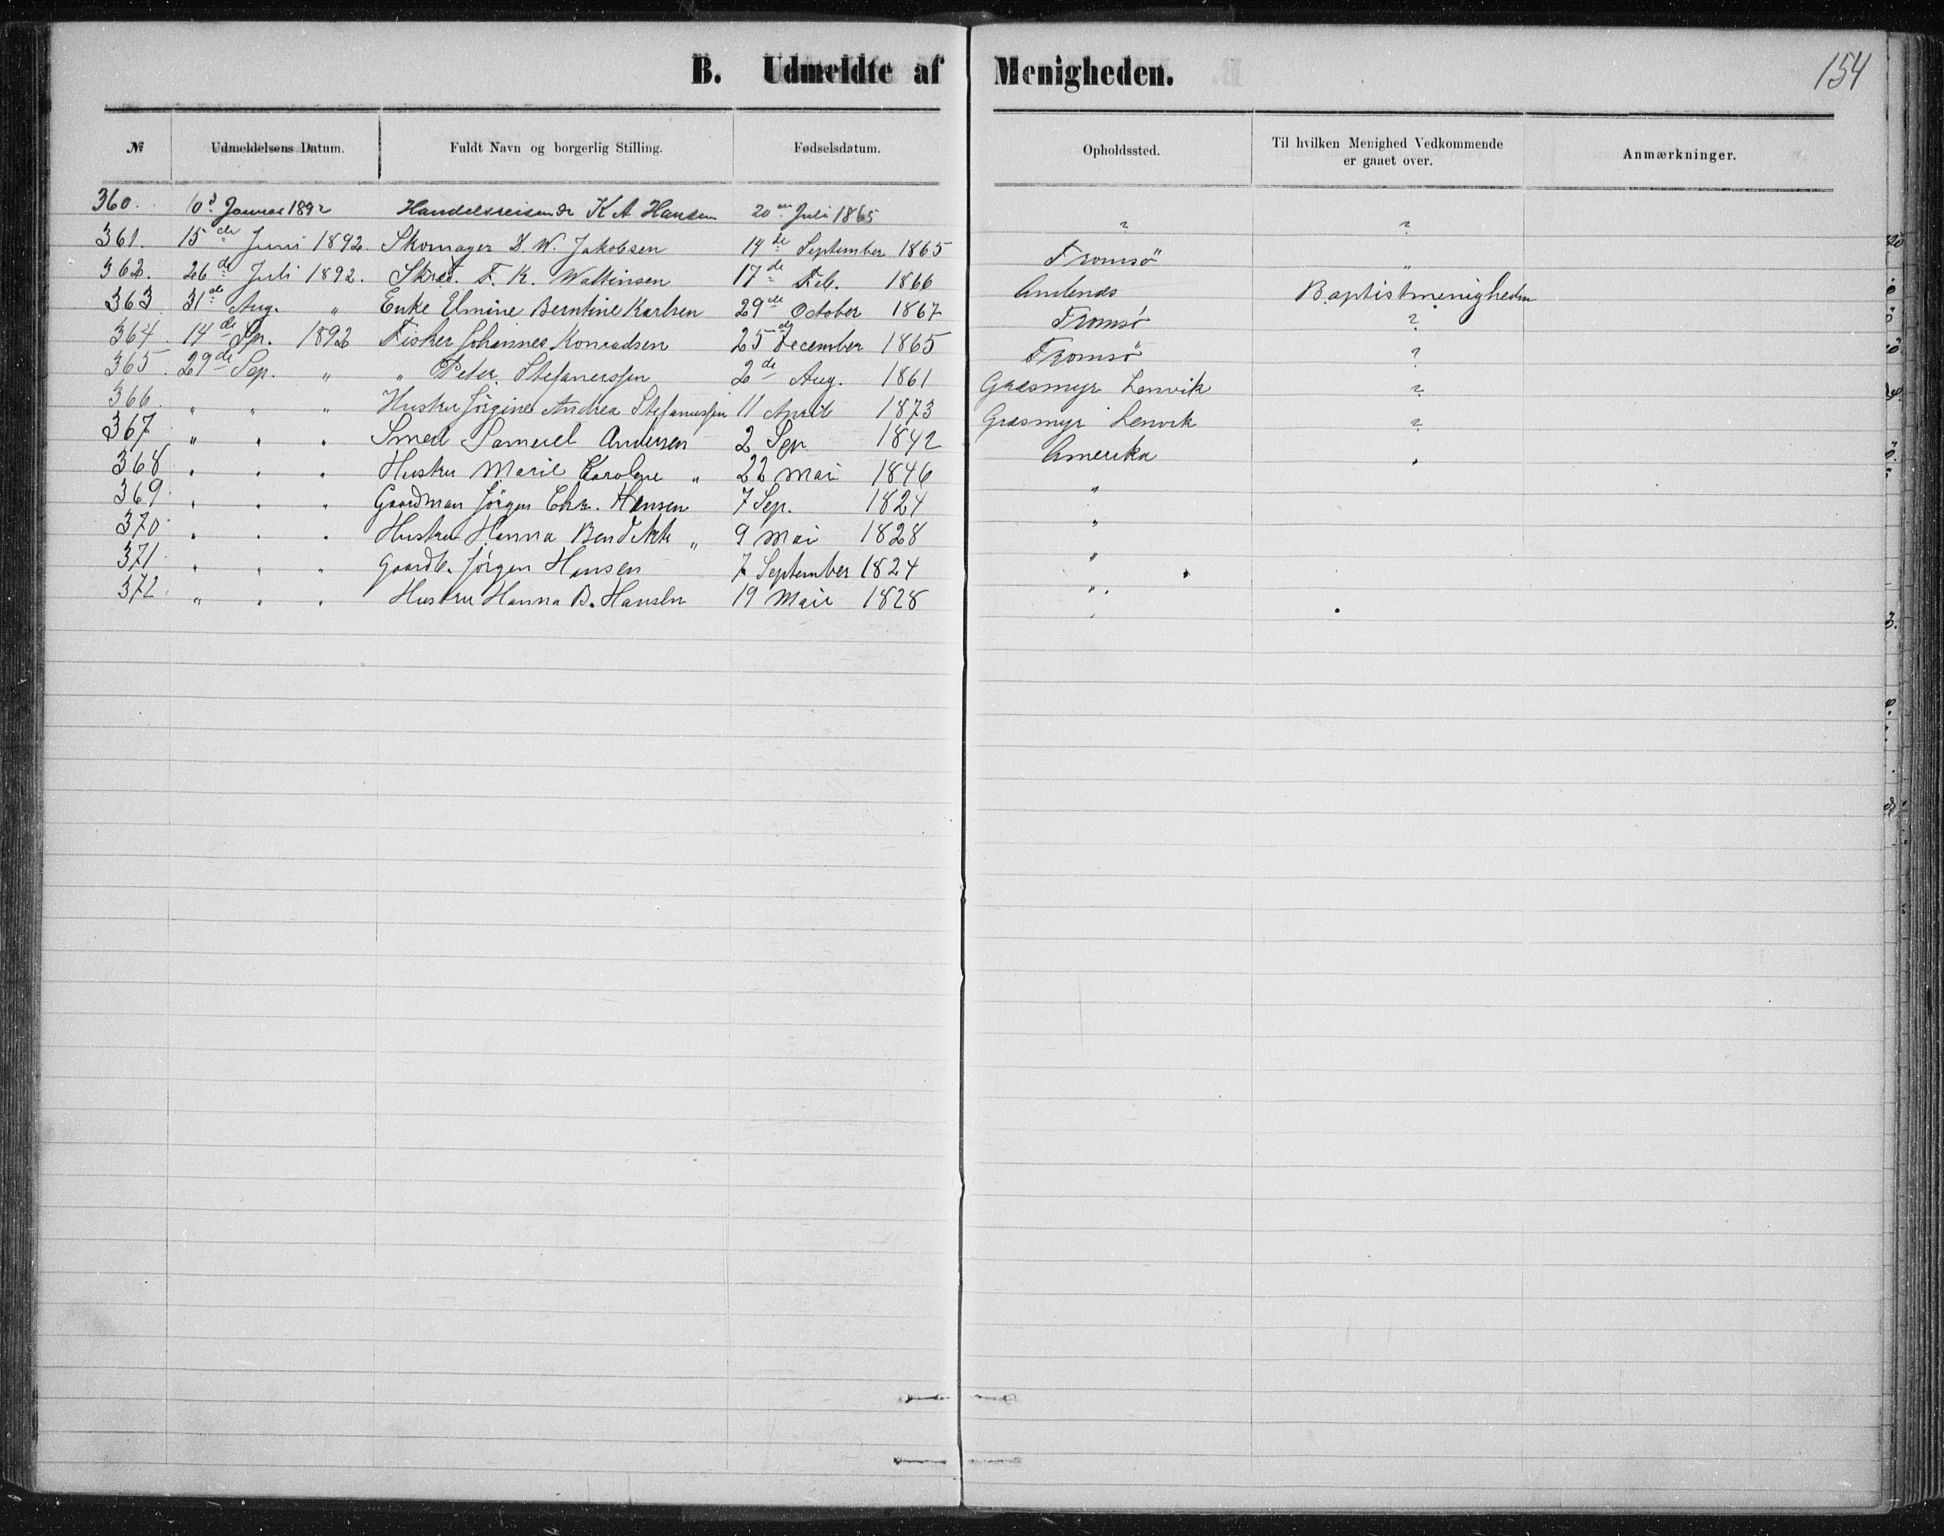 B. Udmeldte af Menigheden. 154
№ Udmeldelsens Datum. Fuldt Navn og borgerlig Stilling. Fødselsdatum. Opholdssted. Til hvilken Menighed Vedkommende er gaaet over. Anmærkninger.
360. Januar 1892 Handelsreisende K A Hansen 20 Juli 1865 " "
361. 15de Juni 1892. Skomager W. Jakobsen 14de September 1865 Tromsö "
362. 26de Juli 1892. K. 17de Feb. 1866 Baptistmenigheden
363. 31de Aug. " Enke Elmine Berntine Karlsen 29de October 1867 Tromsö ?
364. 14de Sp. 1892 Fisker Johannes Konradsen 25de December 1865 Tromsö ?
365. 29de Sep. " " Peter 2de Aug. 1861 Græsmyr Lenvik ?
366. " " " Hustru Jörgine Andrea 11 April 1873 Græsmyr Lenvik ?
367 " " " Smed Samuel Andersen 2 Sep 1842 Amerika "
368 " " " Hustru Marie Karoline " 22 Mai 1846 "
369 " " " Gaardman Jörgen Chr. Hansen 7 Sep. 1824 "
370 " " " Hustru Hanna Bendikte " 9 Mai 1828 "
371 " " " Gaardb. Jörgen Hansen 7 September 1824 "
372 " " " Hustru Hanna B. Hansen 19 Mai 1828 "